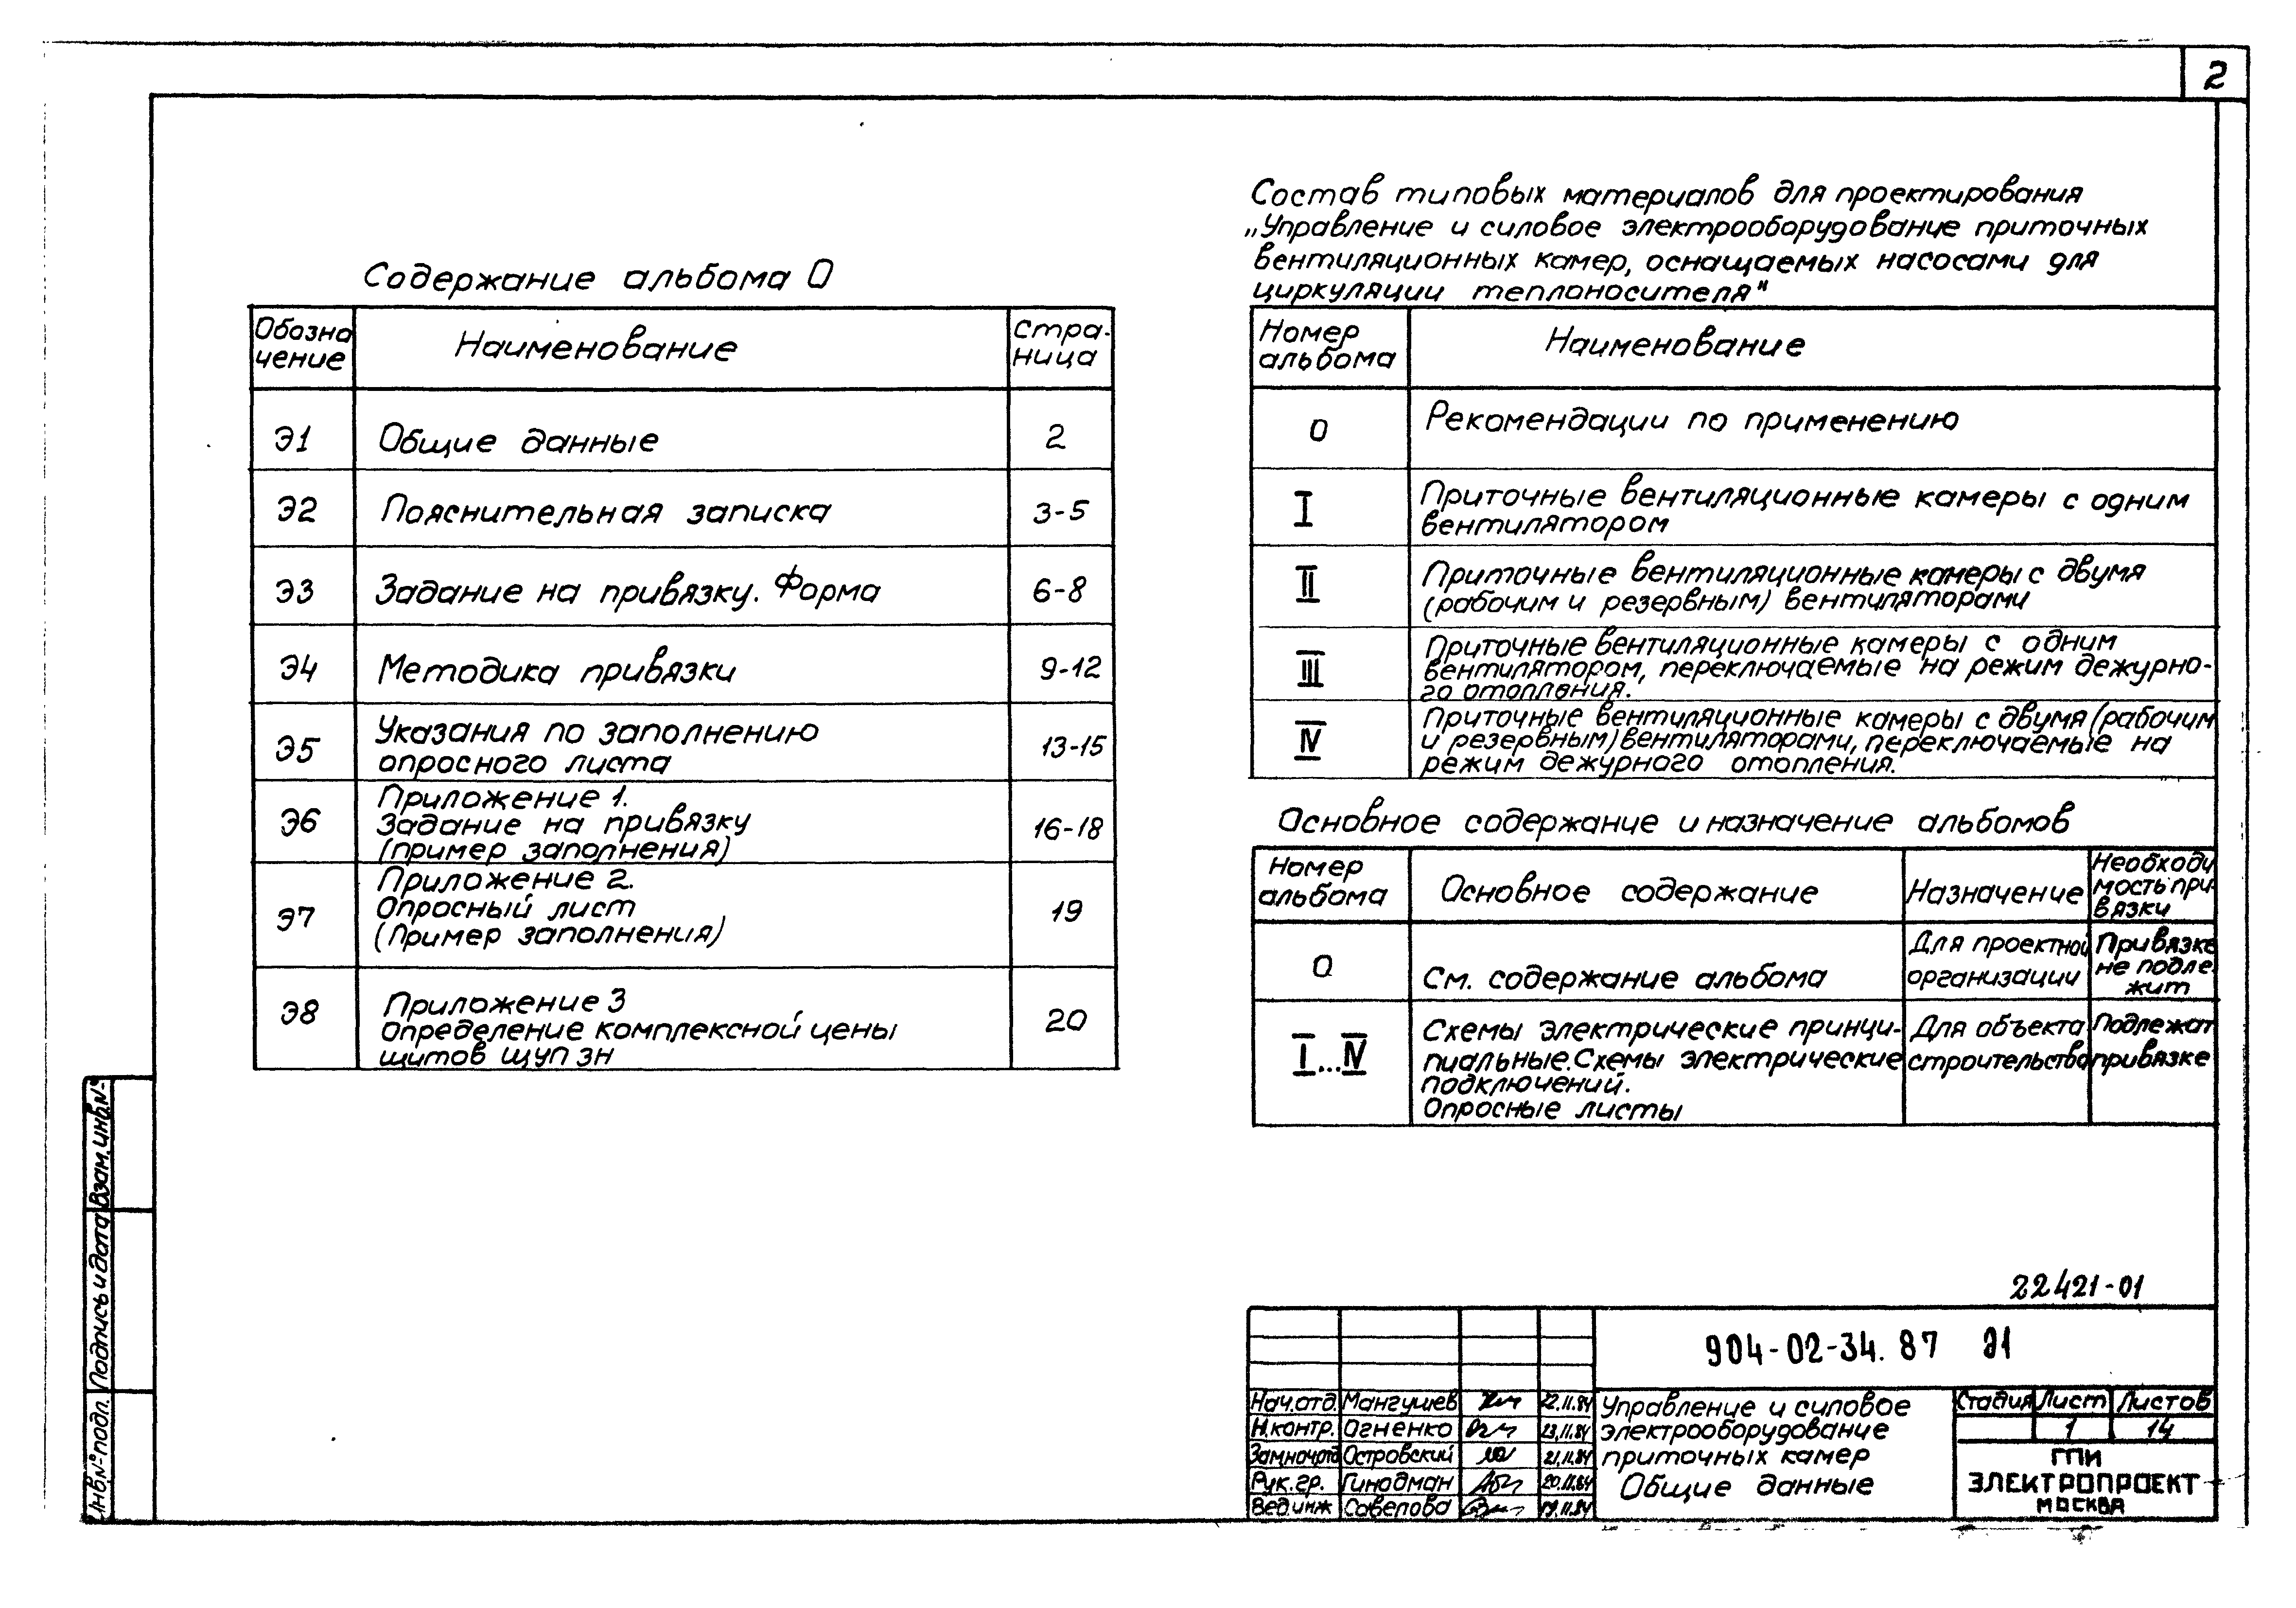 2
Содержание альбома 0
Обозна
чение
Наименование
Стра-
ница
Э1
Общие данные
2
Э2
Пояснительная записка
3-5
Э3
Задание на привязку. Форма
6-8
Э4
Методика привязки
9-12
Э5
Указания по заполнению
опросного листа
13-15
Э6
Приложение 1.
Задание на привязку
(пример заполнения)
16-18
Э7
Приложение 2.
Опросный лист
(Пример заполнения)
19
Э8
Приложение 3
Определение комплексной цены
щитов ЩУПЗН
20
Состав типовых материалов для проектирования
„Управление и силовое электрооборудование приточных
вентиляционных камер, оснащаемых насосами для
циркуляции теплоносителя"
Номер
альбома
Наименование
0
Рекомендации по применению
I
Приточные вентиляционные камеры с одним
вентилятором
II
Приточные вентиляционные камеры с двумя
(рабочим и резервным) вентиляторами
III
Приточные вентиляционные камеры с одним
вентилятором, переключаемые на режим дежурно-
го отопления.
IV
Приточные вентиляционные камеры с двумя (рабочим
и резервным) вентиляторами, переключаемые на
режим дежурного отопления.
Основное содержание и назначение альбомов
Номер
альбома
Основное содержание
Назначение
Необходи
мость при
вязки
0
См. содержание альбома
Для проектной
организации
Привязке
не подле
жит
I...IV
Схемы электрические принци-
пиальные. Схемы электрические
подключений.
Опросные листы
Для объекта
строительства
Подлежат
привязке
22421-01
904-02-34.87 Э1
Нач.отд. Мангушев 22.11.84
Н.контр. Огненко 23.11.84
Зам.нач.отд Островский 21.11.84
Рук.гр. Гинодман 20.11.84
Вед.инж Савелова 19.11.84
Управление и силовое
электрооборудование
приточных камер
Общие данные
Стадия Лист Листов
1 14
ГПИ
ЭЛЕКТРОПРОЕКТ
МОСКВА
Взам.инв.№
Подпись и дата
Инв.№ подл.